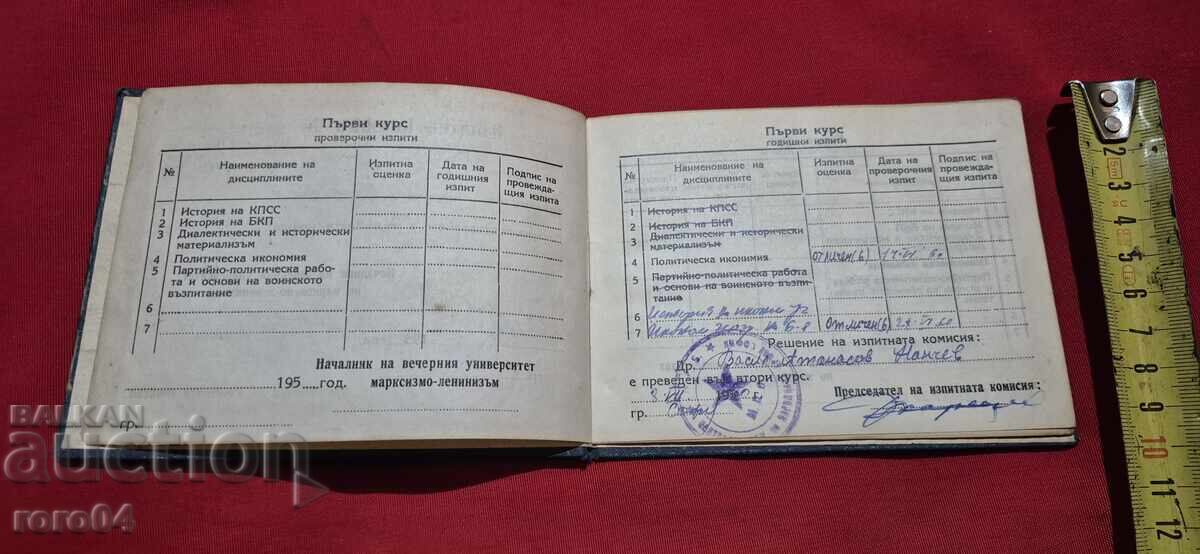 Първи курс
проверочни изпити
№
Наименование на
дисциплините
Изпитна
оценка
Дата на
годишния
изпит
Подпис на
провежда-
щия изпита
1 История на КПСС
2 История на БКП
3 Диалектически и исторически
материализъм
4 Политическа икономия
5 Партийно-политическа рабо-
та и основи на воинското
възпитание
6
7
Началник на вечерния университет
195 год. марксизмо-ленинизъм
гр.
Първи курс
годишни изпити
№
Наименование на
дисциплините
Изпитна
оценка
Дата на
проверочния
изпит
Подпис на
провежда-
щия изпита
1 История на КПСС
2 История на БКП
3 Диалектически и исторически
материализъм
4 Политическа иконимия отличен(6)
5 Партийно-политическа работа
и основи на воинското възпи-
тание
6
7 отличен(6)
Решение на изпитната комисия:
Др. Васил Атанасов Нанчев
е преведен във втори курс.
Председател на изпитната комисия:
гр.
BALKAN
auction
roro04
2
3
4
5
6
7
8
9
10
11
12